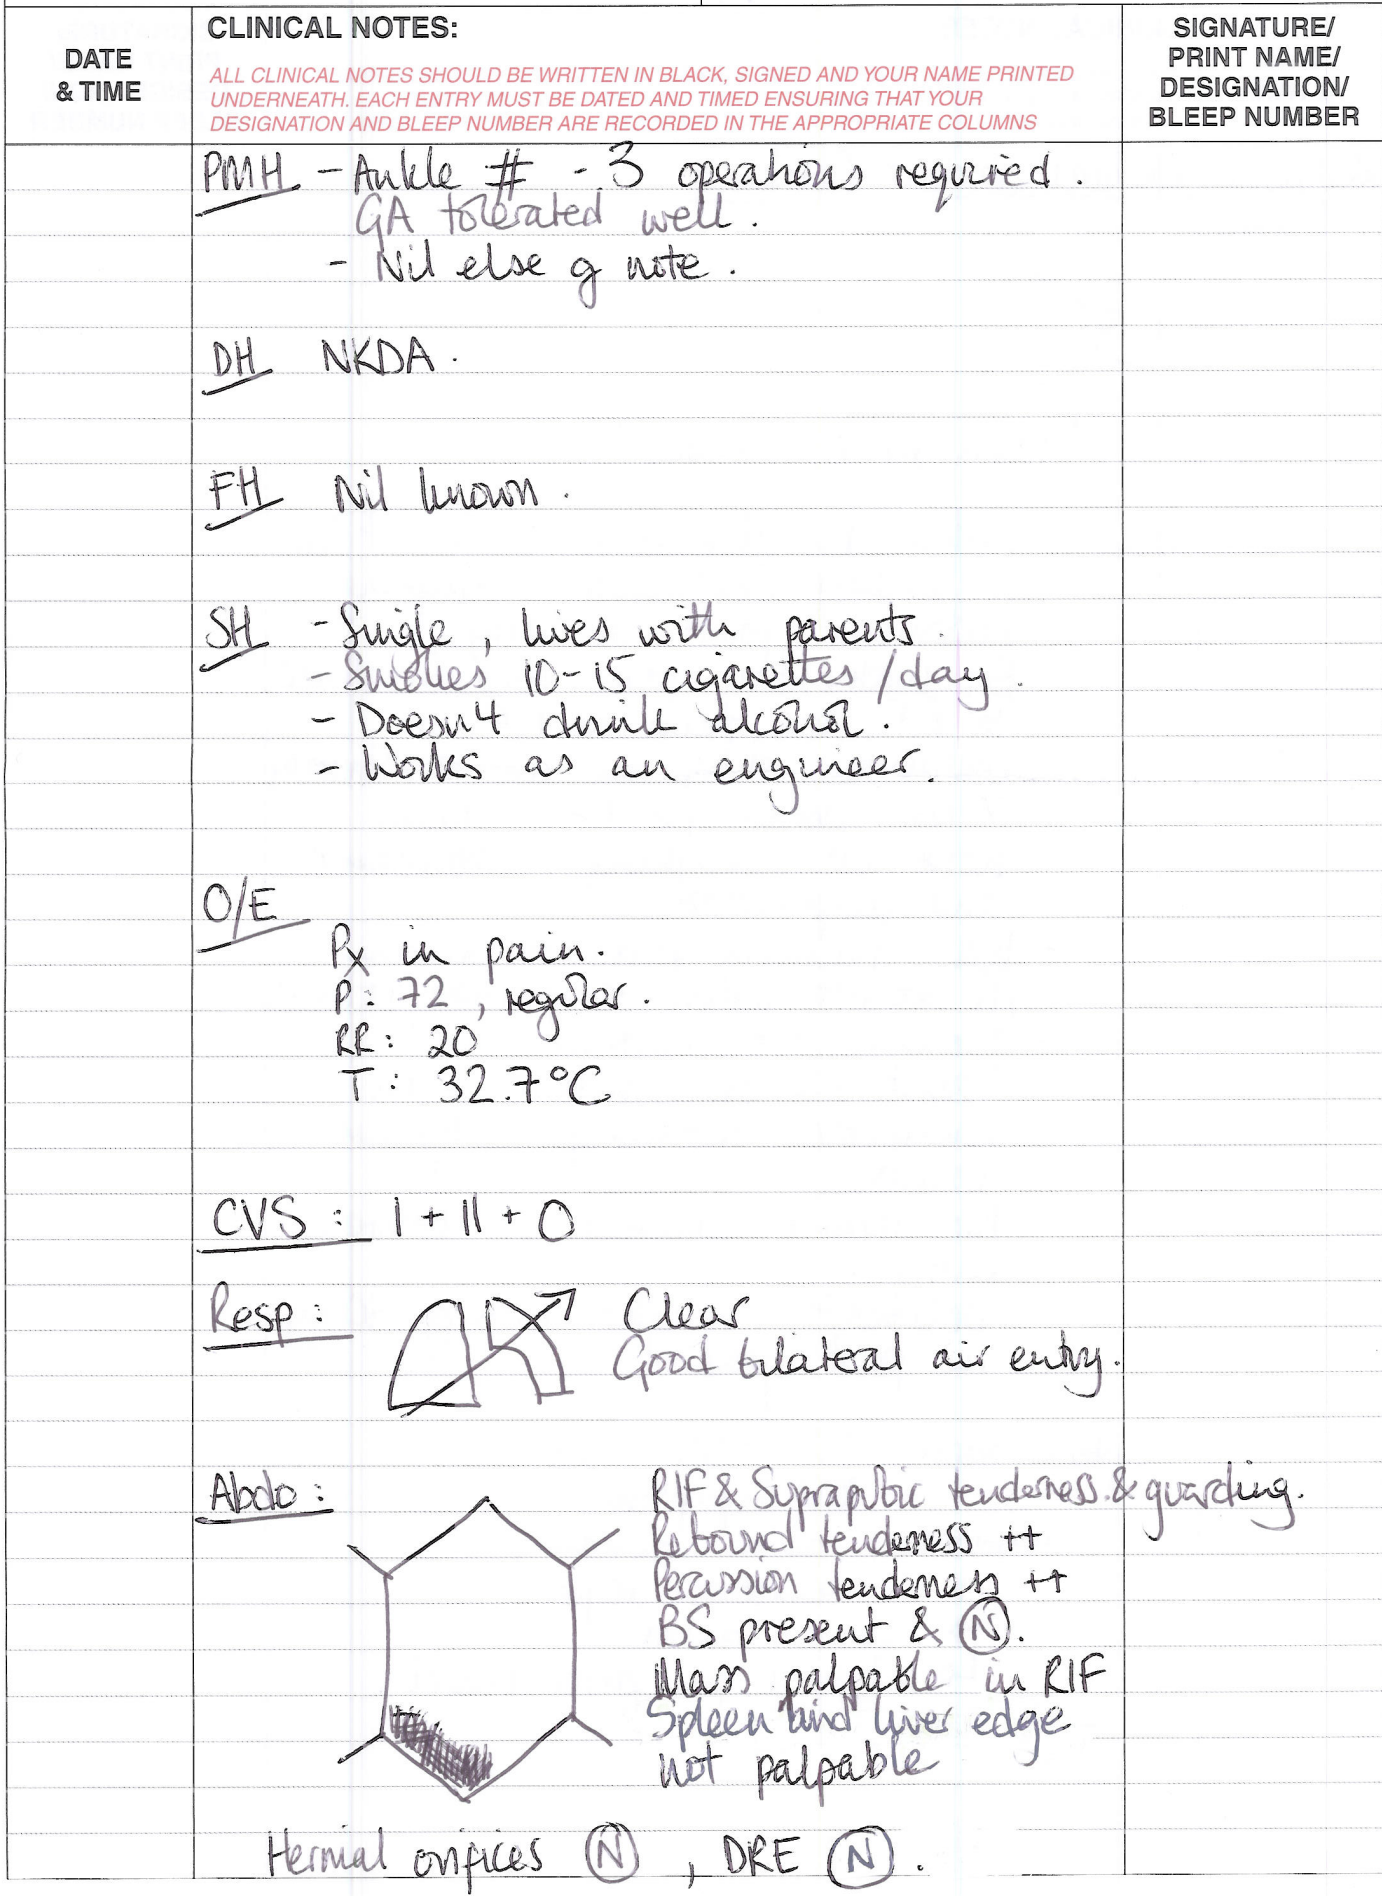 DATE
& TIME
CLINICAL NOTES:
ALL CLINICAL NOTES SHOULD BE WRITTEN IN BLACK, SIGNED AND YOUR NAME PRINTED
UNDERNEATH. EACH ENTRY MUST BE DATED AND TIMED ENSURING THAT YOUR
DESIGNATION AND BLEEP NUMBER ARE RECORDED IN THE APPROPRIATE COLUMNS
SIGNATURE/
PRINT NAME/
DESIGNATION/
BLEEP NUMBER
PMH - Ankle # - 3 operations required.
GA tolerated well.
- Nil else of note.
DH NKDA.
FH Nil known.
SH - Single, lives with parents.
- Smokes 10-15 cigarettes/day.
- Doesn't drink alcohol.
- Works as an engineer.
O/E
Px in pain.
P: 72, regular.
RR: 20
T: 32.7°C
CVS: I + II + O
Resp: Clear
Good bilateral air entry.
Abdo: RIF & Suprapubic tenderness & guarding.
Rebound tenderness ++
Percussion tenderness ++
BS present & N.
Mass palpable in RIF
Spleen and liver edge
not palpable
Hernial orifices N, DRE N.